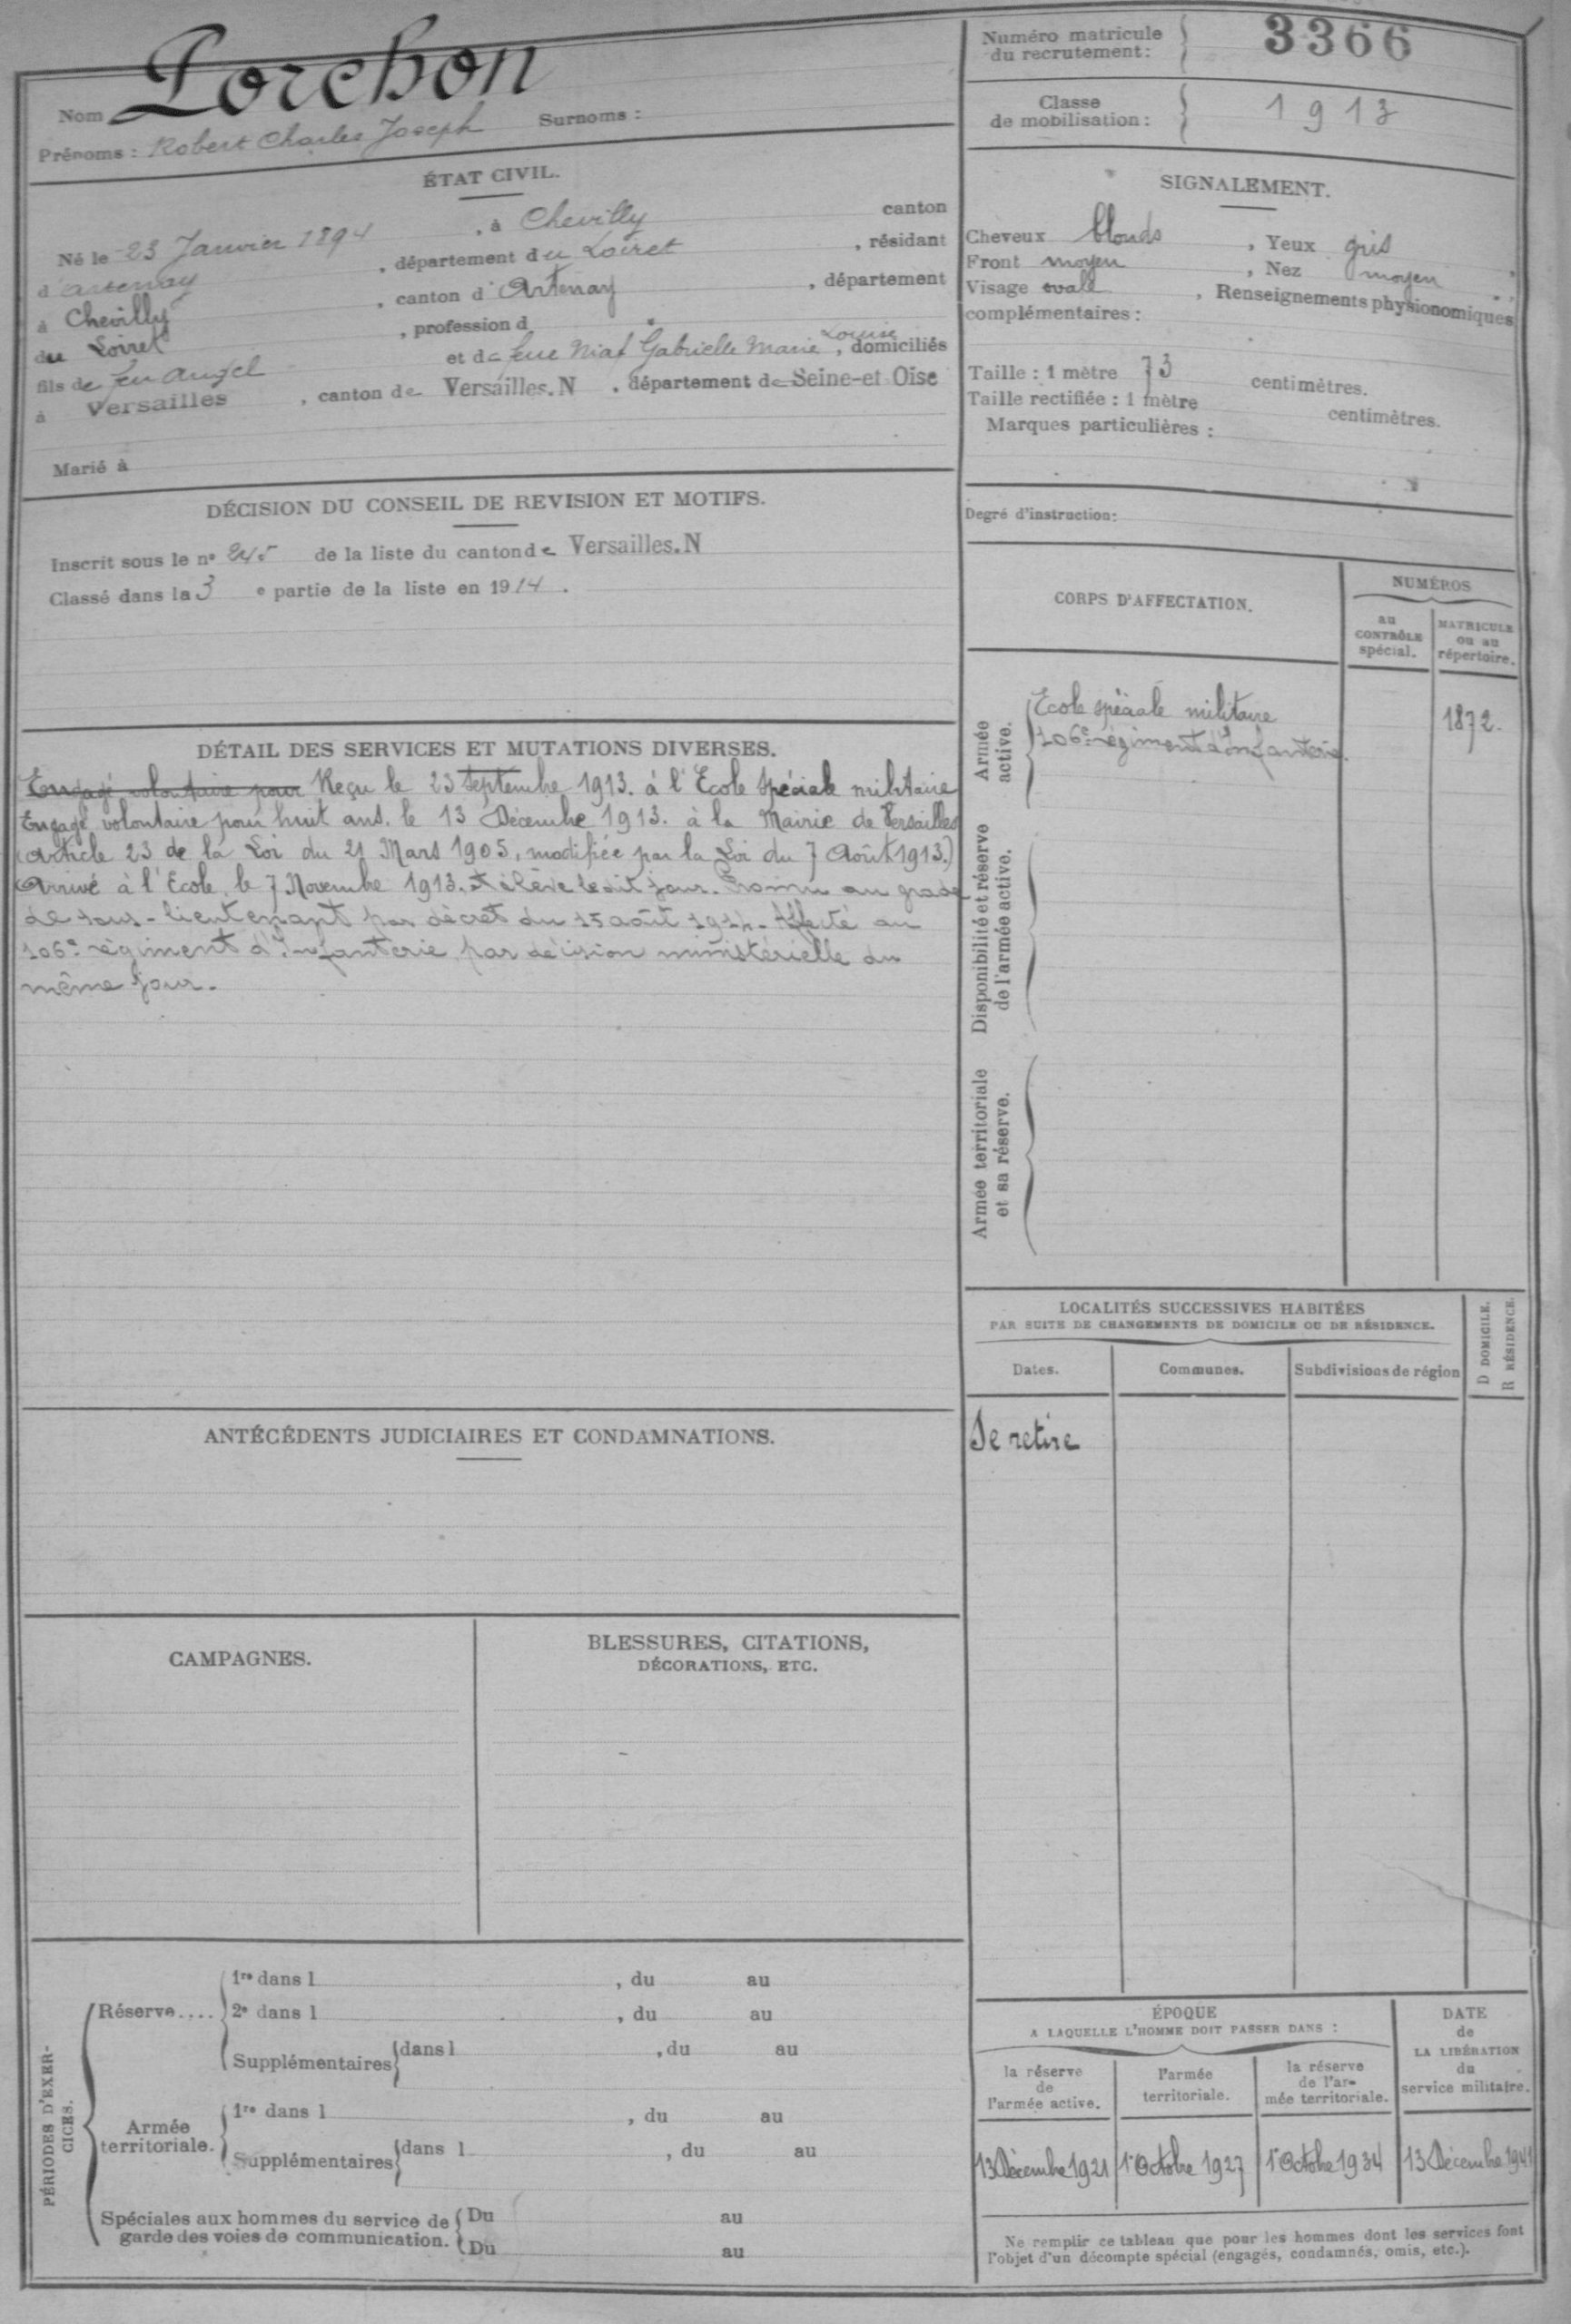 Nom Porchon
Prénoms : Robert Charles Joseph Surnoms :
ÉTAT CIVIL.
Né le 23 Janvier 1894, à Chevilly canton
d'Artenay, département du Loiret, résidant
à Chevilly, canton d'Artenay, département
du Loiret, profession d
fils de feu Angel et de feue Niaf Gabrielle Marie Louise, domiciliés
à Versailles, canton de Versailles.N, département de Seine-et Oise
Marié à
DÉCISION DU CONSEIL DE REVISION ET MOTIFS.
Inscrit sous le n° 245 de la liste du canton de Versailles.N
Classé dans la 3 e partie de la liste en 1914.
DÉTAIL DES SERVICES ET MUTATIONS DIVERSES.
Engagé volontaire pour Reçu le 23 septembre 1913. à l'Ecole Spéciale militaire
Engagé volontaire pour huit ans. le 13 Décembre 1913. à la Mairie de Versailles
(Article 23 de la Loi du 21 Mars 1905, modifiée par la Loi du 7 Août 1913.)
Arrivé à l'Ecole, le 7 Novembre 1913. élève ledit jour. Promu au grade
de sous-lieutenant par décret du 15 août 1914. Affecté au
106e régiment d'Infanterie par décision ministérielle du
même jour.
ANTÉCÉDENTS JUDICIAIRES ET CONDAMNATIONS.
CAMPAGNES.
BLESSURES, CITATIONS,
DÉCORATIONS, ETC.
PÉRIODES D'EXER-
CICES.
Réserve....
1re dans l , du au
2e dans l , du au
Supplémentaires dans l , du au
Armée
territoriale.
1re dans l , du au
Supplémentaires dans l , du au
Spéciales aux hommes du service de
garde des voies de communication.
Du au
Du au
Numéro matricule
du recrutement: 3366
Classe
de mobilisation: 1913
SIGNALEMENT.
Cheveux blonds, Yeux gris
Front moyen, Nez moyen,
Visage ovale, Renseignements physionomiques
complémentaires :
Taille : 1 mètre 73 centimètres.
Taille rectifiée : 1 mètre centimètres.
Marques particulières :
Degré d'instruction:
CORPS D'AFFECTATION.
NUMÉROS
au
CONTRÔLE
spécial.
MATRICULE
ou au
répertoire.
Armée
active.
Ecole spéciale militaire 1872.
106e régiment d'Infanterie.
Disponibilité et réserve
de l'armée active.
Armée territoriale
et sa réserve.
LOCALITÉS SUCCESSIVES HABITÉES
PAR SUITE DE CHANGEMENTS DE DOMICILE OU DE RÉSIDENCE.
D DOMICILE.
R RÉSIDENCE.
Dates. Communes. Subdivisions de région
Se retire
ÉPOQUE
A LAQUELLE L'HOMME DOIT PASSER DANS :
la réserve
de
l'armée active.
l'armée
territoriale.
la réserve
de l'ar-
mée territoriale.
DATE
de
LA LIBÉRATION
du
service militaire.
13 Décembre 1921 1er Octobre 1927 1er Octobre 1934 13 Décembre 1941
Ne remplir ce tableau que pour les hommes dont les services font
l'objet d'un décompte spécial (engagés, condamnés, omis, etc.).